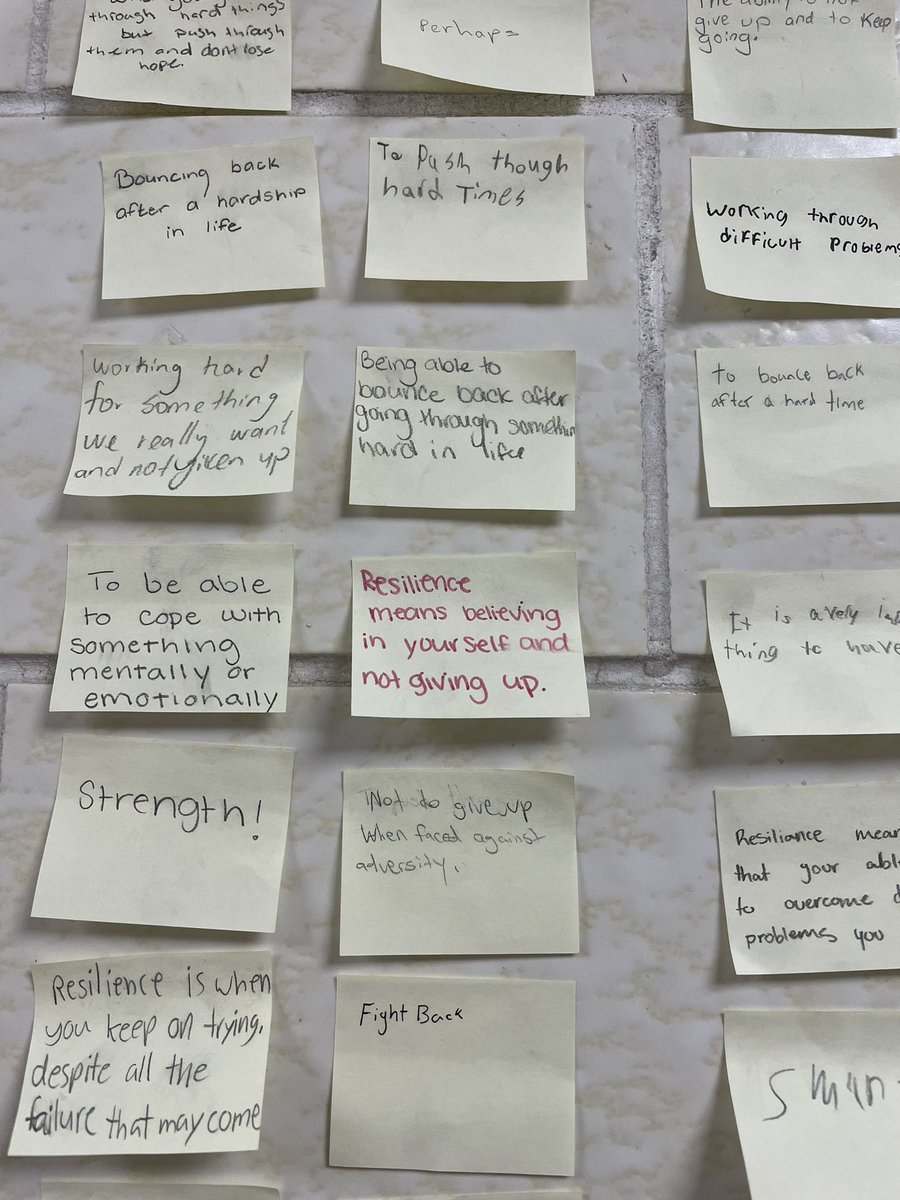 through hard things
but push through
them and dont lose
hope.
Perhaps
The ability to not
give up and to keep
going.
Bouncing back
after a hardship
in life
To Push though
hard Times
Working through
difficult Problems
working hard
for something
we really want
and not given up
Being able to
bounce back after
going through somethin
hard in life
to bounce back
after a hard time
To be able
to cope with
something
mentally or
emotionally
Resilience
means believing
in yourself and
not giving up.
It is a
thing to have
Strength!
Not to give up
When faced against
adversity.
Resiliance mean
that your abl
to overcome
problems you
Resilience is when
you keep on trying,
despite all the
failure that may come
Fight Back